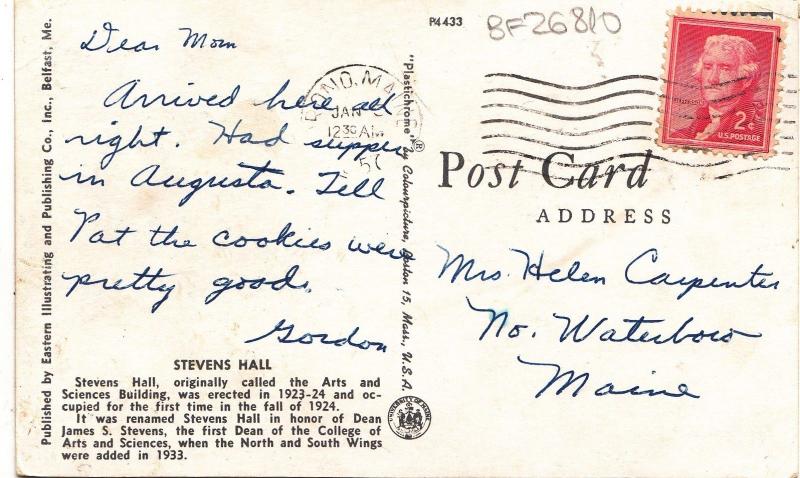 Published by Eastern Illustrating and Publishing Co., Inc., Belfast, Me.
Dear Mom
Arrived here all
right. Had supper
in Augusta. Tell
Pat the cookies were
pretty good.
Gordon
STEVENS HALL
Stevens Hall, originally called the Arts and
Sciences Building, was erected in 1923-24 and oc-
cupied for the first time in the fall of 1924.
It was renamed Stevens Hall in honor of Dean
James S. Stevens, the first Dean of the College of
Arts and Sciences, when the North and South Wings
were added in 1933.
"Plastichrome"® by Colourpicture, Boston 15, Mass., U.S.A.
P4433
8F26810
ORONO, MA
JAN
1230 AM
2¢
U.S. POSTAGE
Post Card
ADDRESS
Mrs. Helen Carpenter
No. Waterboro
Maine
UNIVERSITY OF MAINE